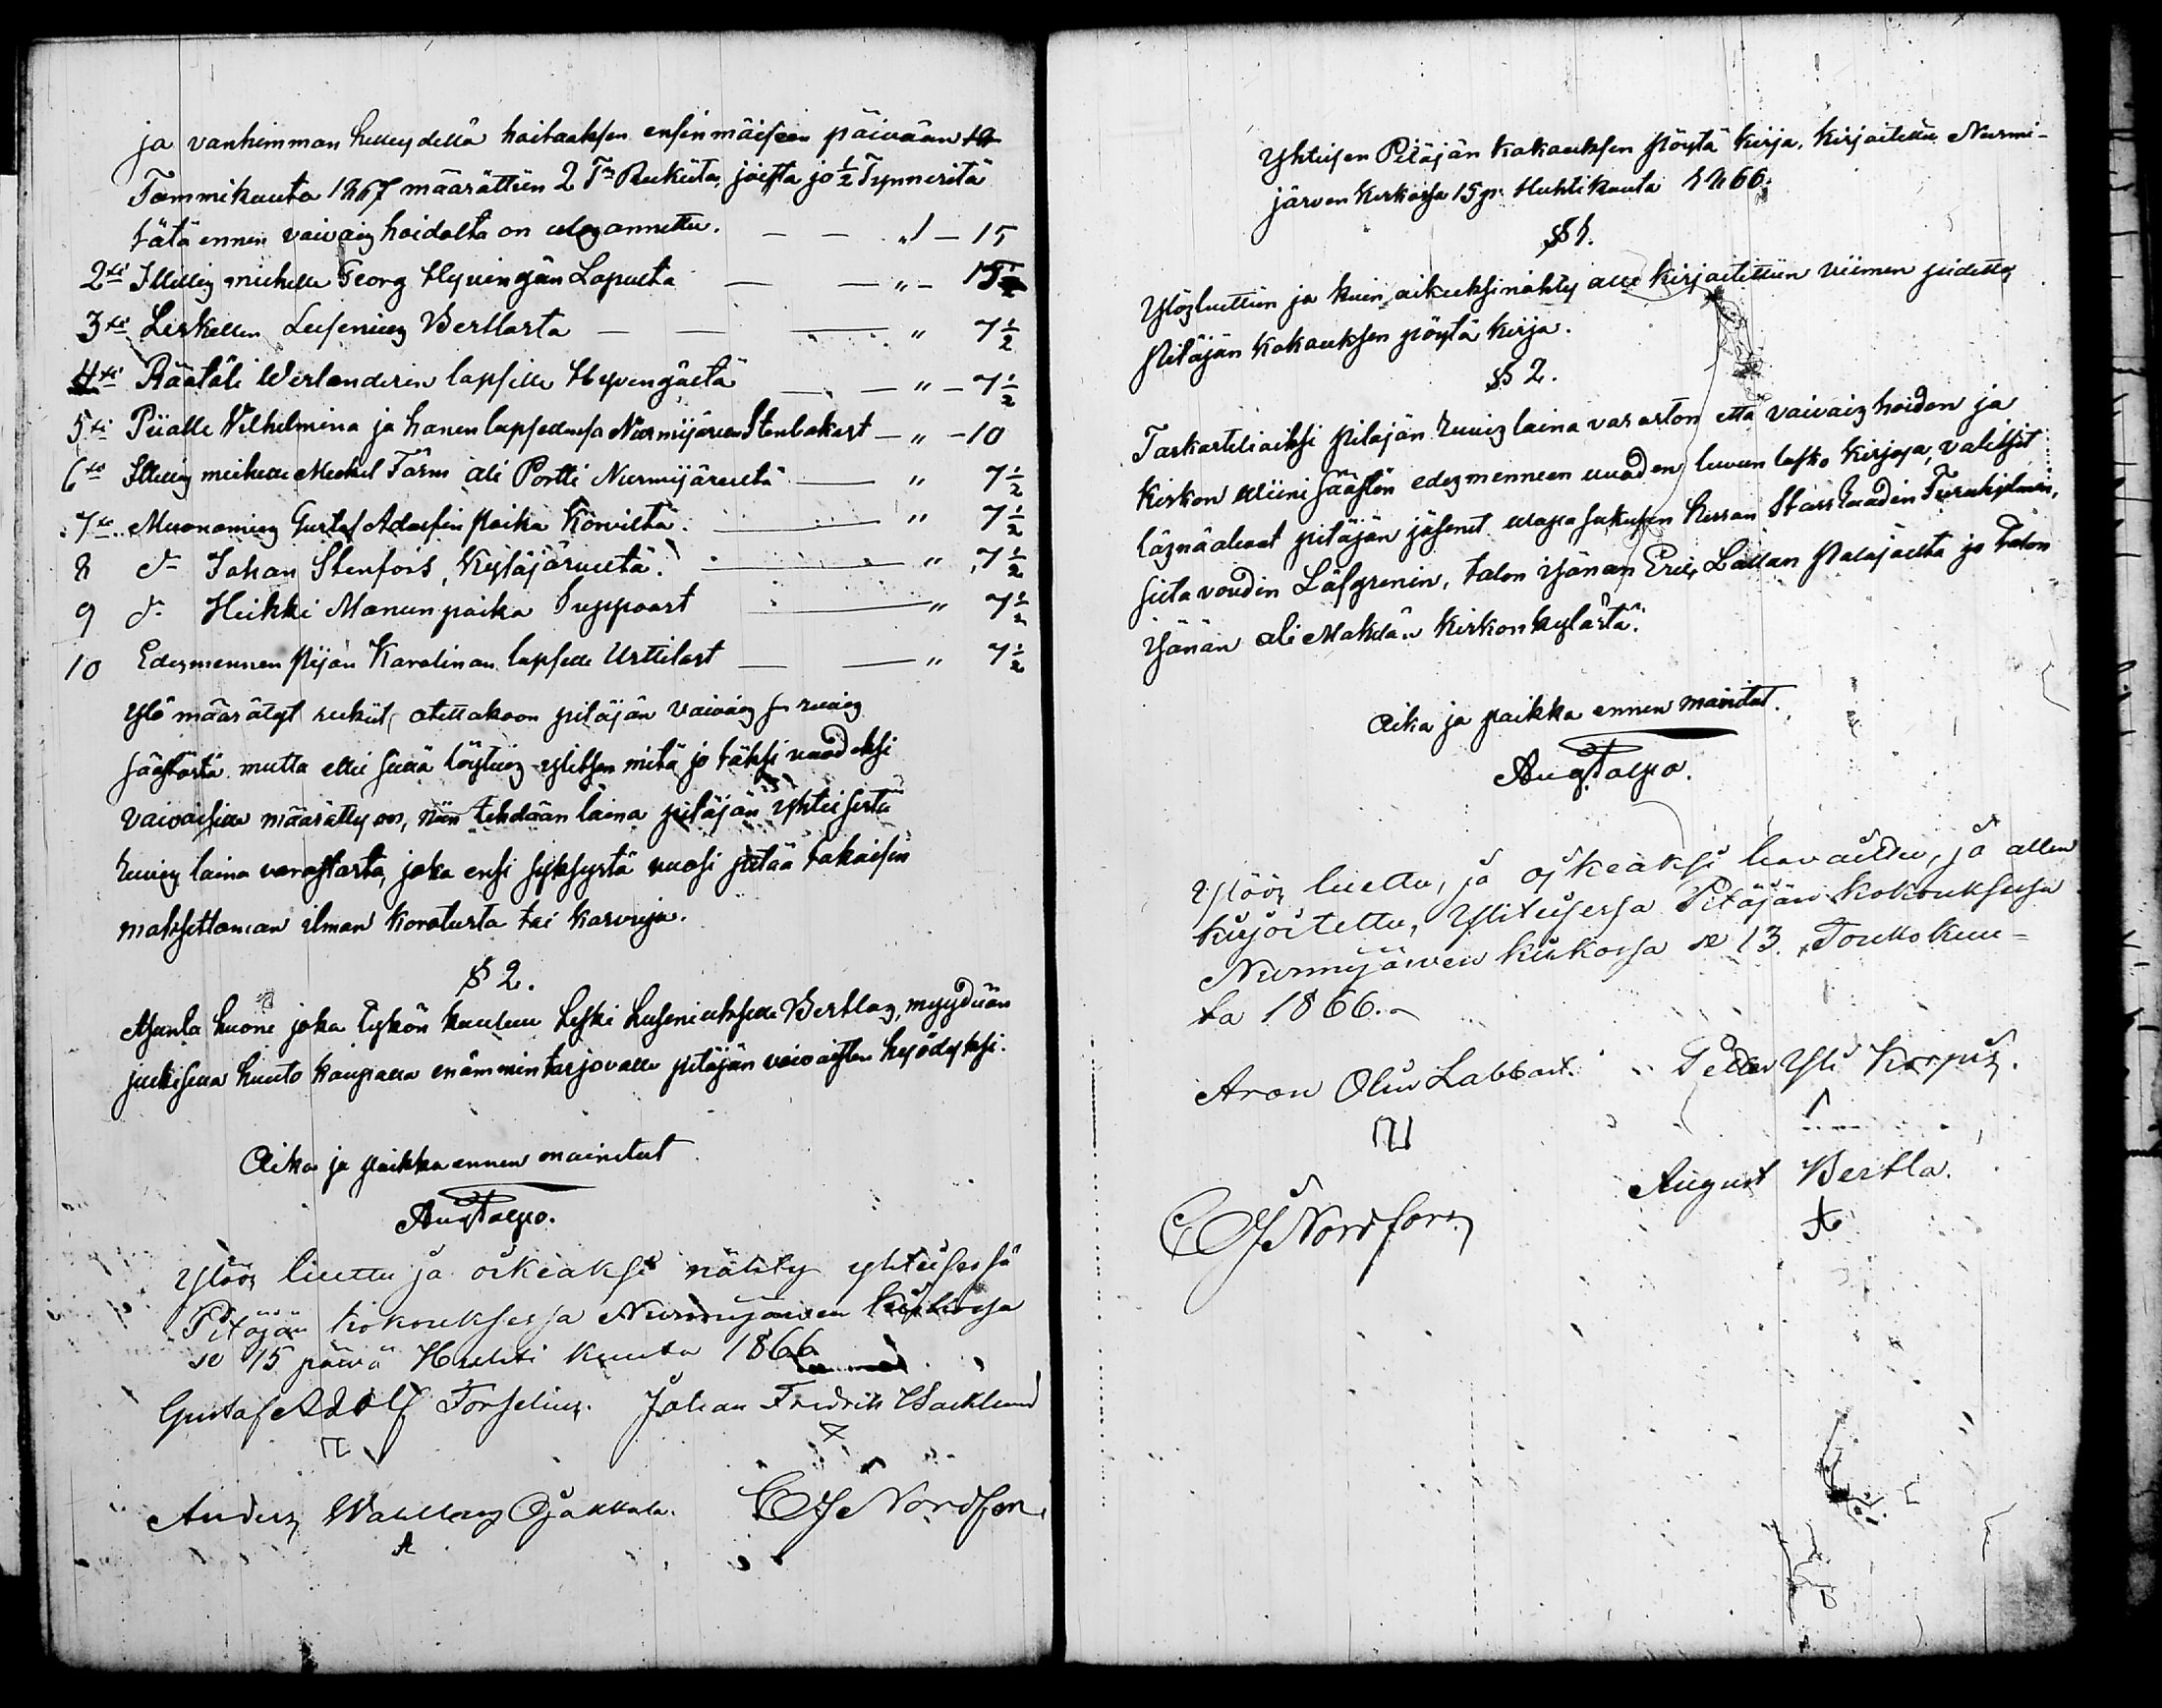 ja vanhimman helleydellä hoitaaksen ensinmäiseen päivään
Tammikuuta 1867 määrättiin 2 Tr Rukiita, joista jo ½ Tynneritä
tätä ennen vaivais hoidolta on ulos annettu. — — „1 — 15
2xi Itellis miehelle Georg Hyvingän Lopulta — — „ — 15
3xi Leskellen Luseniusz Bertlasta — — — „ 7½
4xi Räätäli Verlanderin lapsille Hyvingästä — — „ — 7½
5xi Piialle Vilhelmina ja hänen lapsellensa Nurmijärven Stenbakast — „ — 10
6xi Itellis miehelle Mickel Färm ali Portti Nurmijärveltä — „ 7½
7xi Muonamies Gustaf Adolfin poika Korvilta. — „ 7½
8 dn Johan Stenfors, Kytäjärveltä. — „ 7½
9 dn Heikki Manun poika Suppoost — „ 7½
10 Edesmennen piian Karolinan lapselle Urttilast — — „ 7½
Ylö määrätyt rukiit, otettakoon pitäjän vaivais ruis
säästöstä mutta ellei siellä löytyis ylitsen mitä jo täksi vuodeksi
vaivaisille määrätty on, niin tehdään laina pitäjän yhteisestä
ruis laina varastosta, joka ensi syksystä vuosi pitää takaisin
maksettaman ilman korotusta tai kasvuja.
§ 2.
Asunla huone joka Tykön kuuluu Leski Luseniuksselle Bertlas, myydään
julkisella huuto kaupalla enämmin tarjovalle pitäjän vaivaisten hyödyksi.
Aika ja paikka ennen mainitut
Aug Talpo.
Ylöös luettu ja oikeaksi nähty yhteisessä
Pitäjän kokouksessa Nurmijärven kirkossa
se 15 päivä Huhti kuuta 1866
Gustaf Adolf Forselius. Johan Fredrik Backlund
Anders Wahllberg Ojakkala. C J Nordfors
Yhteisen Pitäjän kokouksen Pöytä kirja, kirjoitettu Nurmi-
järven Kirkossa 15 p. Huhtikuuta 1866.
§ 1.
Ylösluettiin ja kuin oikeeksi nähty alle kirjoitettiin viimen pidetty
Pitäjän kokouksen pöytä kirja.
§ 2.
Tarkasteliaiksi pitäjän ruis laina varaston että vaivais hoidon ja
Kirkon viini säästön edesmenneen vuoden luvun lasko kirjoja, valitsit
läsnä olevat pitäjän jäsenet vapasukusen herran Stassraadin Furuhjelmin,
siltavoudin Läfgrenin, talon isänän Eric Lallan Palojoelta ja talon
isänän ali Mahlän Kirkonkylästä.
Aika ja paikka ennen mainitut.
Aug Talpo.
Ylöös luettu, ja oikeaksi havaittu, ja allen
kirjoitettu, Ylhteisessa Pitäjän kokouksessa
Nurmijärven kirkossa se 13. Toukokuu=
ta 1866.
Aron Oliv Labbart. Petter Yli Korpis.
August Bertla.
C J Nordfors